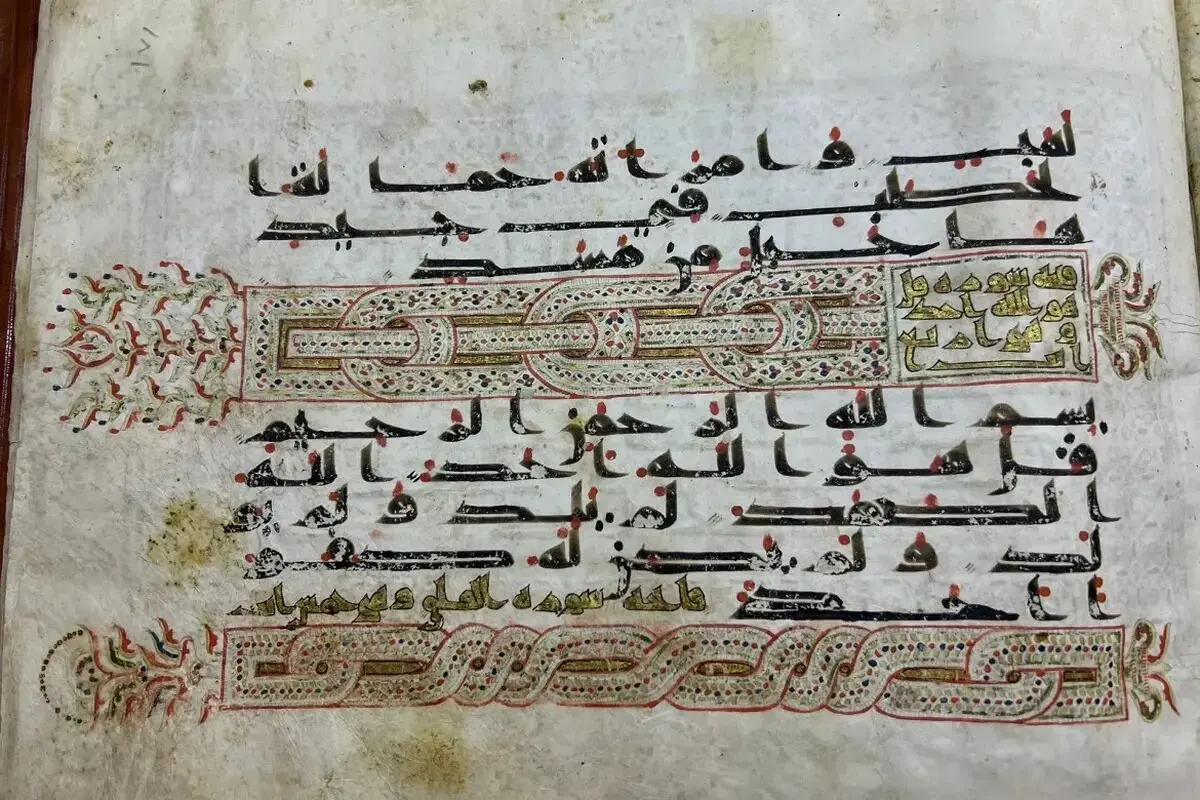 ١٧١
لهب وامراته حمالة ا
لحطب في جيد
ها حبل من مسد
سورة قل
هو الله احد
و هي اربع
ايت
بسم الله الرحمن الرحيم
قل هو الله احد الله
الصمد لم يلد و لم يو
لد و لم يكن له كفو
ا احد فاتحة سورة الفلق و هي خمس ايات